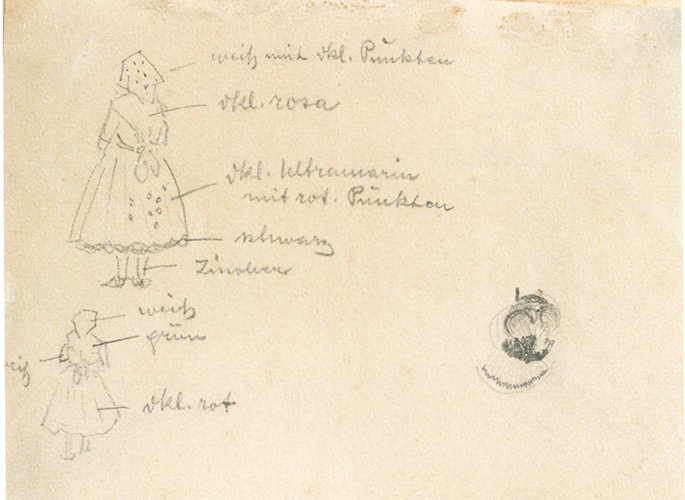 weiß mit dkl. Punkten
dkl. rosa
dkl. Ultramarin
mit rot. Punkten
schwarz
Zinober
weiß
grün
weiß
dkl. rot